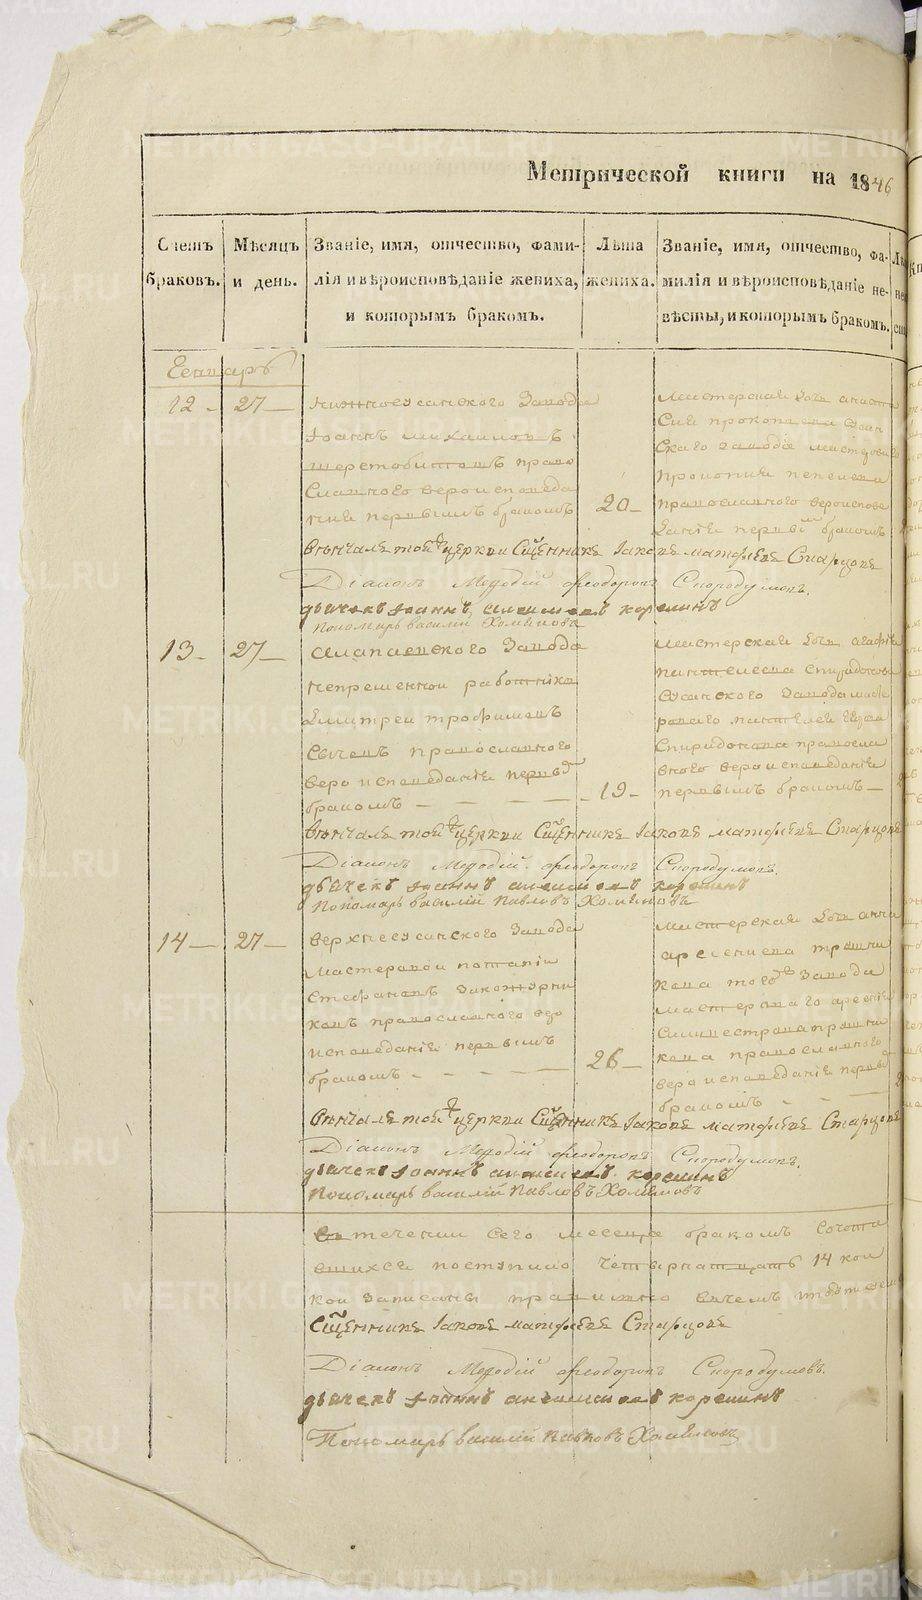 Метрической книги на 1846
Счетъ браковъ.
Мѣсяцъ и день.
Званіе, имя, отчество, фами-
лія и вѣроисповѣданіе жениха,
и которымъ бракомъ.
Лѣта
жениха.
Званіе, имя, отчество, фа-
милія и вѣроисповѣданіе не-
вѣсты, и которымъ бракомъ.
Генваръ
12 - 27 -
нижнесусанского завода
Иоаннъ михаиловъ
шерстобитовъ право
славного вероисповеда
ния первымъ бракомъ
20 -
мастерская дочь
ския прокопиева
ского завода мастерового
прокопия
православного вероиспове
дание первы бракомъ
вѣнчалъ той церкви Сщенникъ Іаковъ матфеевъ Старцовъ
Діаконъ Мефодій феодоровъ Скородумовъ.
дьячекъ Іоаннъ корелинъ
Пономарь василий Хомяковъ
13 - 27 -
Алапаевского завода
непременной работникъ
Димитреи трофимовъ
Сычевъ православного
вероисповедание первы
бракомъ - - - -
19 -
мастерская дочь агафия
пантелеева спиридонова
сусанского завода масте
рового пантелея
Спиридонова правосла
вного вероисповедание
первымъ бракомъ -
вѣнчалъ той церкви Сщенникъ Іаковъ матфеевъ Старцовъ
Діаконъ Мефодій феодоровъ Скородумовъ.
дьячекъ Іоаннъ корелинъ
Пономарь василий Павловъ Хомяковъ
14 - 27 -
верхнесусанского завода
мастеровои потапи
Стефановъ закожурни
ковъ православного веро
исповедание первымъ
бракомъ - - - -
26 -
мастерская дочь анна
арсениева
кова того завода
мастерового арсения
кова православного
вероисповедание первы
бракомъ - -
вѣнчалъ той церкви Сщенникъ Іаковъ матфеевъ Старцовъ
Діаконъ Мефодій феодоровъ Скородумовъ.
дьячекъ Іоаннъ корелинъ
Пономарь василий Павловъ Хомяковъ
въ течении сего месеца бракомъ сочета
вшихся поступило четырнатцать 14 кои
записаны правилно вчемъ
Сщенникъ Іаковъ матфеевъ Старцовъ
Діаконъ Мефодій феодоровъ Скородумовъ.
дьячекъ Іоаннъ корелинъ
Пономарь василий Павловъ Хомяковъ
METRIKI.GASO-URAL.RU